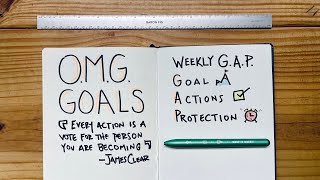 O.M.G.
GOALS
『EVERY ACTION IS A
VOTE FOR THE PERSON
YOU ARE BECOMING』
—JAMES CLEAR
WEEKLY G.A.P.
GOAL
ACTIONS
PROTECTION